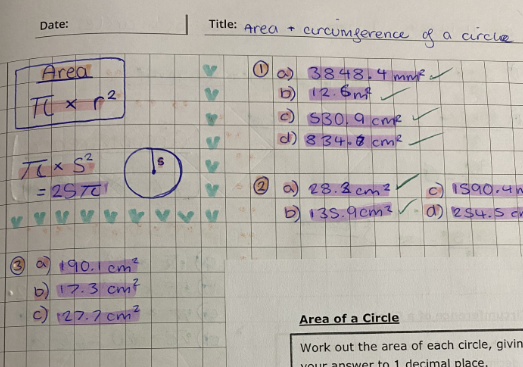 Date:
Title: Area + circumference of a circle
Area
π × r²
π × 5²
= 25π
5
① a) 3848.4 mm²
b) 12.6m²
c) 530.9 cm²
d) 834.6 cm²
② a) 28.3 cm²
b) 135.9cm²
c) 1590.4
d) 254.5
③ a) 190.1 cm²
b) 17.3 cm²
c) 127.7 cm²
Area of a Circle
Work out the area of each circle,
your answer to 1 decimal place.